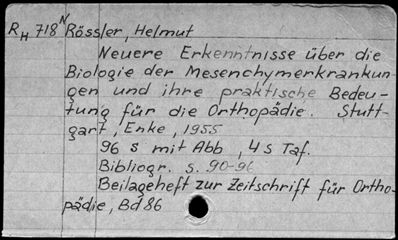 RH 718N Rössler, Helmut
Neuere Erkenntnisse über die
Biologie der Mesenchymerkrankun-
gen und ihre praktische Bedeu-
tung für die Orthopädie. Stutt-
gart, Enke, 1955
96 s mit Abb, 4 s Taf.
Bibliogr. s. 90-96
Beilageheft zur Zeitschrift für Ortho-
pädie, Bd 86